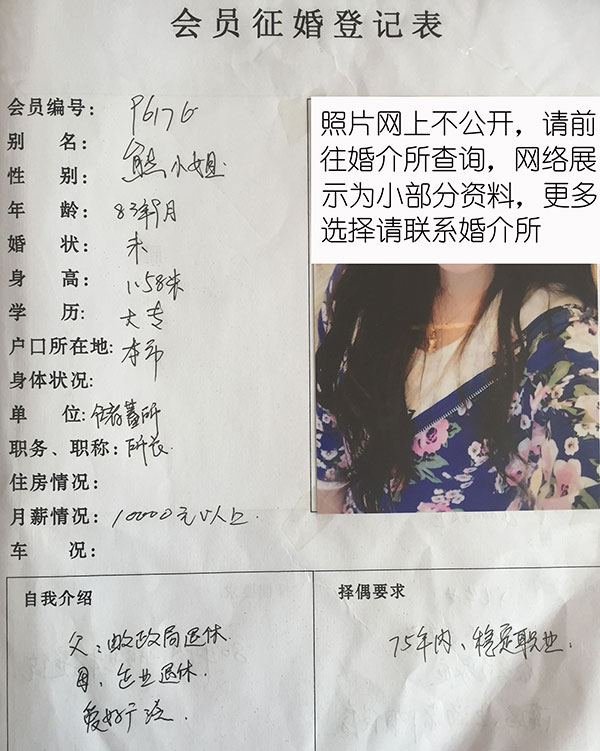 会员征婚登记表
会员编号: P6176
别 名: 熊小姐
性 别:
年 龄: 83年9月
婚 状: 未
身 高: 1.58米
学 历: 大专
户口所在地: 本市
身体状况:
单 位: 储蓄所
职务、职称: 所长
住房情况:
月薪情况: 10000元以上.
车 况:
照片网上不公开，请前
往婚介所查询，网络展
示为小部分资料，更多
选择请联系婚介所
自我介绍
父：邮政局退休.
母、企业退休.
爱好广泛.
择偶要求
75年内、稳定职业.